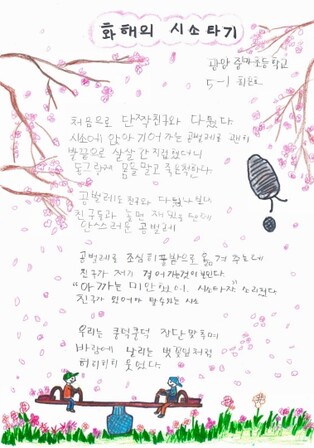 화해의 시소타기
광양 중마초등학교
5-1 최은호
처음으로 단짝친구와 다퉜다
시소에 앉아 기어가는 공벌레를 괜히
발끝으로 살살 간지럽혔더니
동그랗게 몸을 말고 죽은척한다
공벌레도 친구와 다퉜나보다
친구들과 놀면 재밌을 텐데
안쓰러운 공벌레
공벌레를 조심히 풀밭으로 옮겨 주는데
친구가 저기 걸어가는것이 보인다
"아까는 미안했어. 시소타자" 소리쳤다
친구가 있어야 탈수있는 시소
우리는 쿵덕쿵덕 장단맞추며
바람에 날리는 벚꽃잎처럼
허리히히 웃었다